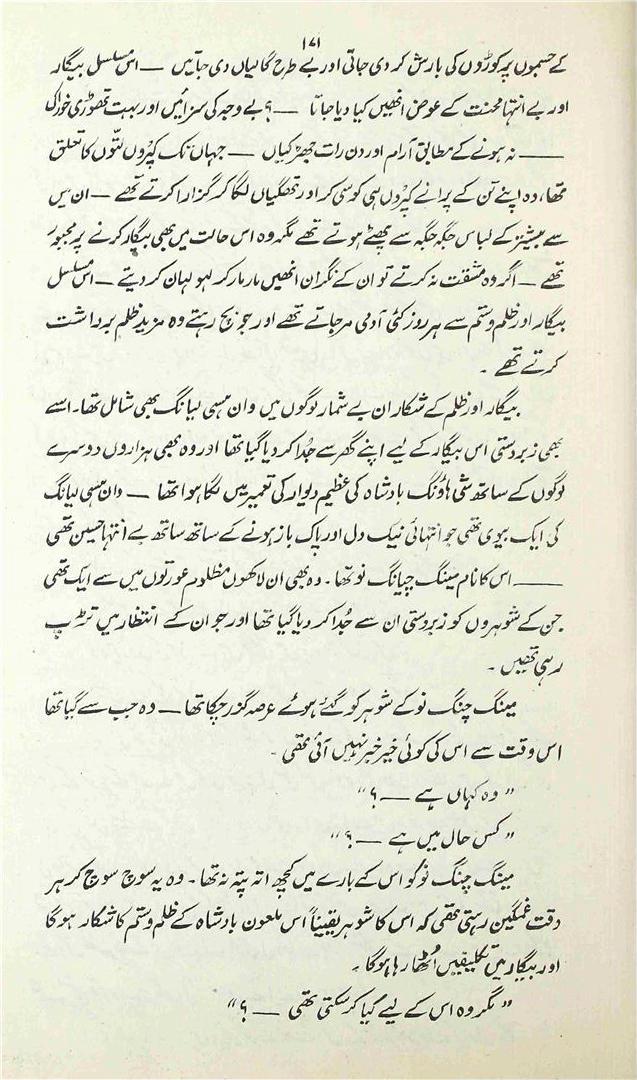 ۱۷۱
کے جسموں پر کوڑوں کی بارش کر دی جاتی اور بے طرح گالیاں دی جاتیں — اس مسلسل بیگار
اور بے انتہا محنت کے عوض انھیں کیا دیا جاتا — ؟ بے وجہ کی سزائیں اور بہت تھوڑی خوراک
—— نہ ہونے کے مطابق آرام اور دن رات جھڑکیاں — جہاں تک کپڑوں لتّوں کا تعلق
تھا، وہ اپنے تن کے پرانے کپڑوں ہی کو سی کر اور تھگلیاں لگا کر گزارا کرتے تھے — ان میں
سے بیشتر کے لباس جگہ جگہ سے پھٹے ہوتے تھے مگر وہ اس حالت میں بھی بیگار کرنے پر مجبور
تھے — اگر وہ مشقت نہ کرتے تو ان کے نگران انھیں مار مار کر لہو لہان کر دیتے — اس مسلسل
بیگار اور ظلم و ستم سے ہر روز کئی آدمی مر جاتے تھے اور جو بچ رہتے وہ مزید ظلم برداشت
کرتے تھے ۔
بیگار اور ظلم کے شکار ان بے شمار لوگوں میں وان ہسی لیانگ بھی شامل تھا۔ اسے
بھی زبردستی اس بیگار کے لیے اپنے گھر سے جُدا کر دیا گیا تھا اور وہ بھی ہزاروں دوسرے
لوگوں کے ساتھ شی ہوُنگ بادشاہ کی عظیم دیوار کی تعمیر میں لگا ہوا تھا — وان ہسی لیانگ
کی ایک بیوی تھی جو انتہائی نیک دل اور پاک باز ہونے کے ساتھ ساتھ بے انتہا حسین تھی
—— اس کا نام مینگ چیانگ نو تھا۔ وہ بھی ان لاکھوں مظلوم عورتوں میں سے ایک تھی
جن کے شوہروں کو زبردستی ان سے جُدا کر دیا گیا تھا اور جو ان کے انتظار میں تڑپ
رہی تھیں ۔
مینگ چنگ نو کے شوہر کو گئے ہوئے عرصہ گزر چکا تھا — وہ جب سے گیا تھا
اس وقت سے اس کی کوئی خیر خبر نہیں آئی تھی ۔
” وہ کہاں ہے — ؟ “
” کس حال میں ہے — ؟ “
مینگ چنگ نو کو اس کے بارے میں کچھ اتہ پتہ نہ تھا۔ وہ یہ سوچ سوچ کر ہر
وقت غمگین رہتی تھی کہ اس کا شوہر یقیناً اس ملعون بادشاہ کے ظلم و ستم کا شکار ہو گا
اور بیگار میں تکلیفیں اُٹھا رہا ہو گا ۔
” مگر وہ اس کے لیے کیا کر سکتی تھی — ؟ “